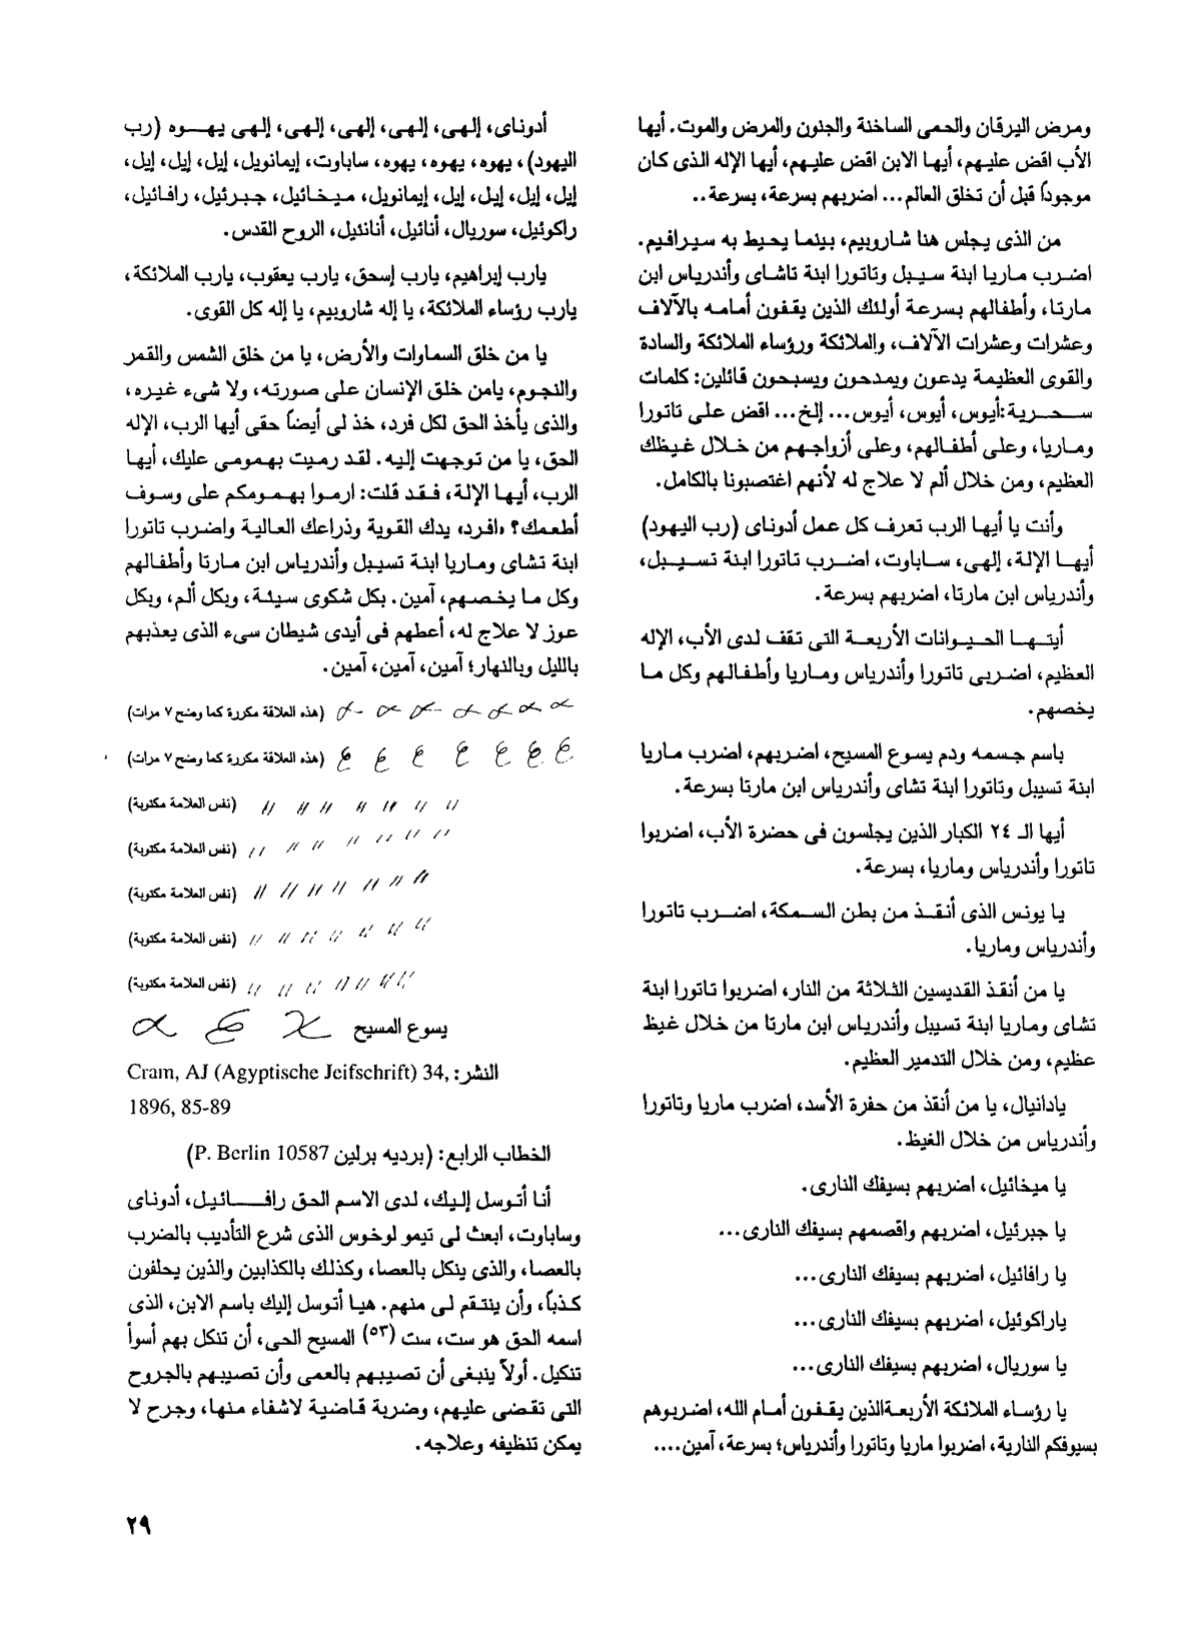 ومرض اليرقان والحمى الساخنة والجنون والمرض والموت. أيها
الأب اقض عليهم، أيها الابن اقض عليهم، أيها الإله الذى كان
موجوداً قبل أن تخلق العالم... اضربهم بسرعة، بسرعة..
من الذى يجلس هنا شاروبيم، بينما يحيط به سيرافيم.
اضرب ماريا ابنة سيبل وتاتورا ابنة تاشاى وأندرياس ابن
مارتا، وأطفالهم بسرعة أولئك الذين يقفون أمامه بالآلاف
وعشرات وعشرات الآلاف، والملائكة ورؤساء الملائكة والسادة
والقوى العظيمة يدعون ويمدحون ويسبحون قائلين: كلمات
سحرية:أيوس، أيوس، أيوس... إلخ... اقض على تاتورا
وماريا، وعلى أطفالهم، وعلى أزواجهم من خلال غيظك
العظيم، ومن خلال ألم لا علاج له لأنهم اغتصبونا بالكامل.
وأنت يا أيها الرب تعرف كل عمل أدوناى (رب اليهود)
أيها الإلة، إلهى، ساباوت، اضرب تاتورا ابنة تسيبل،
وأندرياس ابن مارتا، اضربهم بسرعة.
أيتها الحيوانات الأربعة التى تقف لدى الأب، الإله
العظيم، اضربى تاتورا وأندرياس وماريا وأطفالهم وكل ما
يخصهم.
باسم جسمه ودم يسوع المسيح، اضربهم، اضرب ماريا
ابنة تسيبل وتاتورا ابنة تشاى وأندرياس ابن مارتا بسرعة.
أيها الـ ٢٤ الكبار الذين يجلسون فى حضرة الأب، اضربوا
تاتورا وأندرياس وماريا، بسرعة.
يا يونس الذى أنقذ من بطن السمكة، اضرب تاتورا
وأندرياس وماريا.
يا من أنقذ القديسين الثلاثة من النار، اضربوا تاتورا ابنة
تشاى وماريا ابنة تسيبل وأندرياس ابن مارتا من خلال غيظ
عظيم، ومن خلال التدمير العظيم.
يادانيال، يا من أنقذ من حفرة الأسد، اضرب ماريا وتاتورا
وأندرياس من خلال الغيظ.
يا ميخائيل، اضربهم بسيفك النارى.
يا جبرئيل، اضربهم واقصمهم بسيفك النارى...
يا رافائيل، اضربهم بسيفك النارى...
ياراكوئيل، اضربهم بسيفك النارى...
يا سوريال، اضربهم بسيفك النارى...
يا رؤساء الملائكة الأربعةالذين يقفون أمام الله، اضربوهم
بسيوفكم النارية، اضربوا ماريا وتاتورا وأندرياس؛ بسرعة، آمين....
أدوناى، إلهى، إلهى، إلهى، إلهى، إلهى يهوه (رب
اليهود)، يهوه، يهوه، يهوه، ساباوت، إيمانويل، إيل، إيل، إيل،
إيل، إيل، إيل، إيل، إيمانويل، ميخائيل، جبرئيل، رافائيل،
راكوئيل، سوريال، أنائيل، أنانئيل، الروح القدس.
يارب إبراهيم، يارب إسحق، يارب يعقوب، يارب الملائكة،
يارب رؤساء الملائكة، يا إله شاروبيم، يا إله كل القوى.
يا من خلق السماوات والأرض، يا من خلق الشمس والقمر
والنجوم، يامن خلق الإنسان على صورته، ولا شىء غيره،
والذى يأخذ الحق لكل فرد، خذ لى أيضاً حقى أيها الرب، الإله
الحق، يا من توجهت إليه. لقد رميت بهمومى عليك، أيها
الرب، أيها الإلة، فقد قلت: ارموا بهمومكم على وسوف
أطعمك؟ «افرد، يدك القوية وذراعك العالية واضرب تاتورا
ابنة تشاى وماريا ابنة تسيبل وأندرياس ابن مارتا وأطفالهم
وكل ما يخصهم، آمين. بكل شكوى سيئة، وبكل ألم، وبكل
عوز لا علاج له، أعطهم فى أيدى شيطان سىء الذى يعذبهم
بالليل وبالنهار؛ آمين، آمين، آمين.
(هذه العلاقة مكررة كما وضح ٧ مرات)
(هذه العلاقة مكررة كما وضح ٧ مرات)
(نفس العلامة مكتوبة)
(نفس العلامة مكتوبة)
(نفس العلامة مكتوبة)
(نفس العلامة مكتوبة)
(نفس العلامة مكتوبة)
يسوع المسيح
النشر: Cram, AJ (Agyptische Jeifschrift) 34,
1896, 85-89
الخطاب الرابع: (برديه برلين P. Berlin 10587)
أنا أتوسل إليك، لدى الاسم الحق رافائيل، أدوناى
وساباوت، ابعث لى تيمو لوخوس الذى شرع التأديب بالضرب
بالعصا، والذى ينكل بالعصا، وكذلك بالكذابين والذين يحلفون
كذباً، وأن ينتقم لى منهم. هيا أتوسل إليك باسم الابن، الذى
اسمه الحق هو ست، ست (٥٣) المسيح الحى، أن تنكل بهم أسوأ
تنكيل. أولاً ينبغى أن تصيبهم بالعمى وأن تصيبهم بالجروح
التى تقضى عليهم، وضربة قاضية لاشفاء منها، وجرح لا
يمكن تنظيفه وعلاجه.
٢٩